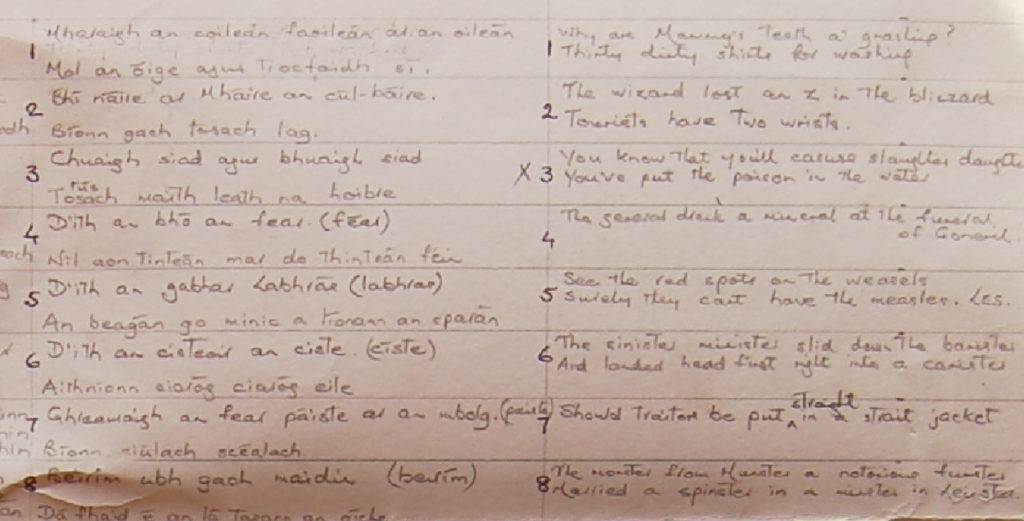 1 Mharaigh an coileán faoileán ar an oileán
Mol an óige agus tiocfaidh sí.
2 Bhí náire ar Mháire an cúl-báire.
Bíonn gach tosach lag.
3 Chuaigh siad agus bhuaigh siad
tús
Tosach maith leath na hoibre
4 D'ith an bhó an fear. (féar)
Níl aon tinteán mar do thinteán féin
5 D'ith an gabhar Labhrás (labhras)
An beagán go minic a líonann an sparán
6 D'ith an cisteoir an ciste. (císte)
Aithníonn ciaróg ciaróg eile
7 Ghreamaigh an fear páiste ar an mbolg. (paiste)
Bíonn siúlach scéalach.
8 Beirim ubh gach maidin (beirím)
Dá fhaid é an lá tagann an oíche
1 Why are Mammy's teeth a' gnashing?
Thirty dirty shirts for washing
2 The wizard lost an z in the blizzard
Tourists have two wrists.
X 3 You know that you'll casuse slaughter
You've put the poison in the water
4 The general drank a mineral at the funeral
of General.
5 See the red spots on the weasels
Surely they can't have the measles. Les.
6 The sinister minister slid down the banister
And landed head first right into a canister
straight
7 Should traitors be put in a strait jacket
8 The monster from Munster a notorious funster
Married a spinster in a minster in Leinster.